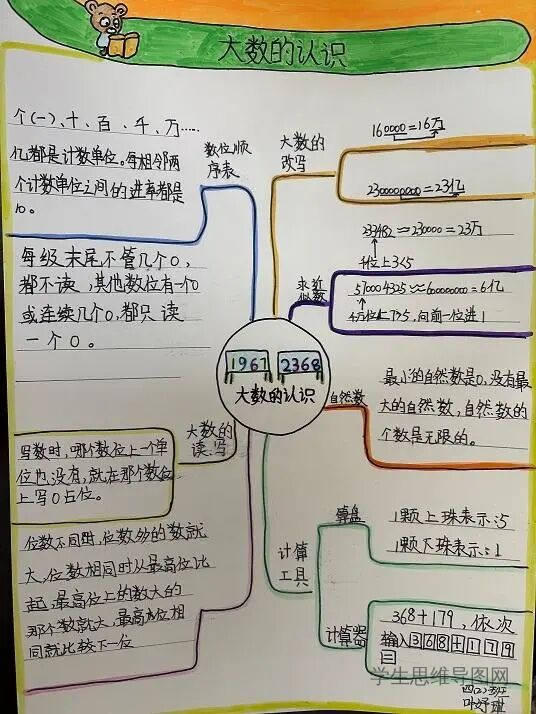 大数的认识
个(一)、十、百、千、万……
亿都是计数单位。每相邻两
个计数单位之间的进率都是
10。
数位顺
序表
每级末尾不管几个0,
都不读,其他数位有一个0
或连续几个0,都只读
一个0。
大数的
读、写
写数时,哪个数位上一个单
位也没有,就在那个数位
上写0占位。
位数不同时,位数多的数就
大,位数相同时从最高位比
起,最高位上的数大的
那个数就大,最高位相
同就比较下一位
1967
2368
大数的认识
大数的
改写
160000=16万
2300000000=23亿
求近
似数
233482≈230000=23万
千位上3<5
570004325≈600000000=6亿
千万位上7>5,向前一位进1
自然数
最小的自然数是0,没有最
大的自然数,自然数的
个数是无限的。
计算
工具
算盘
1颗上珠表示:5
1颗下珠表示:1
计算器
368+179,依次
输入368+179
=
学生思维导图网
四(2)班